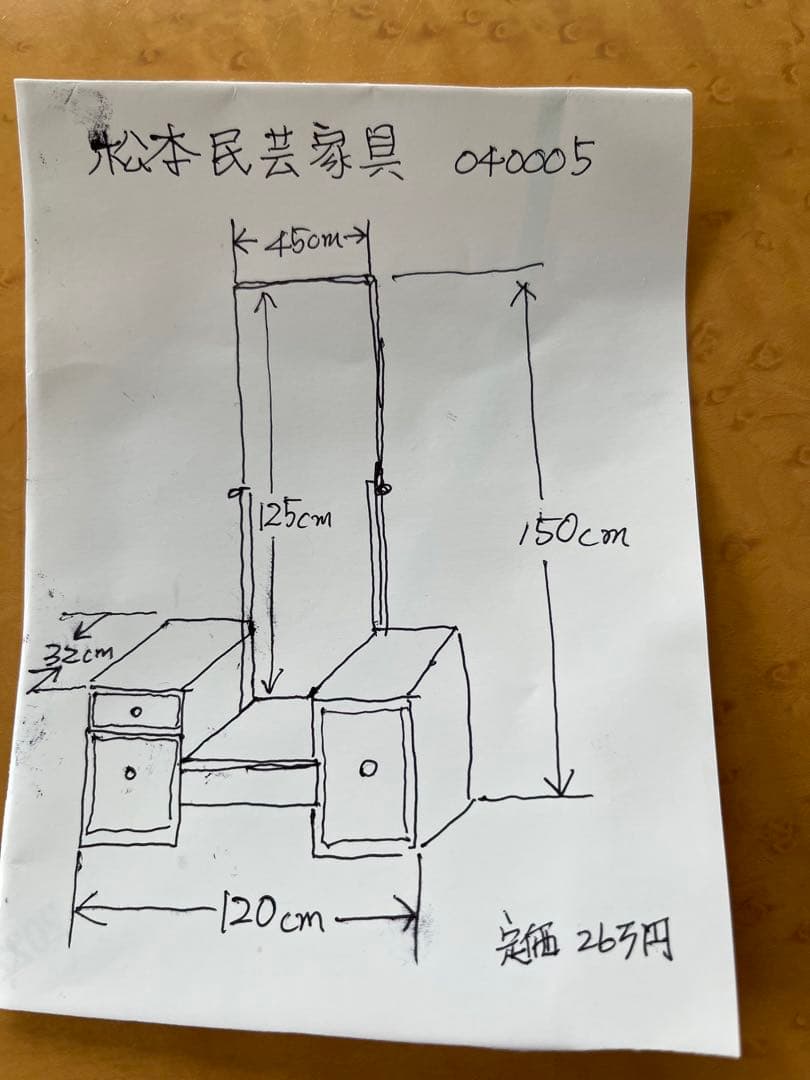 松本民芸家具 040005
45cm
125cm
150cm
32cm
120cm
定価 26万円